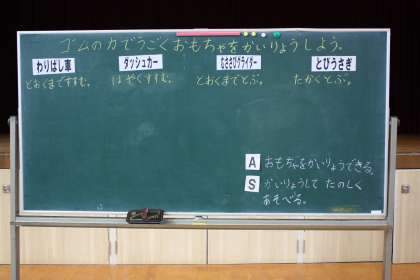 ゴムの力でうごくおもちゃをかいりょうしよう。
わりばし車 ダッシュカー むささびグライダー とびうさぎ
とおくまですすむ。 はやくすすむ。 とおくまでとぶ。 たかくとぶ。
A おもちゃをかいりょうできる。
S かいりょうして たのしく
あそべる。